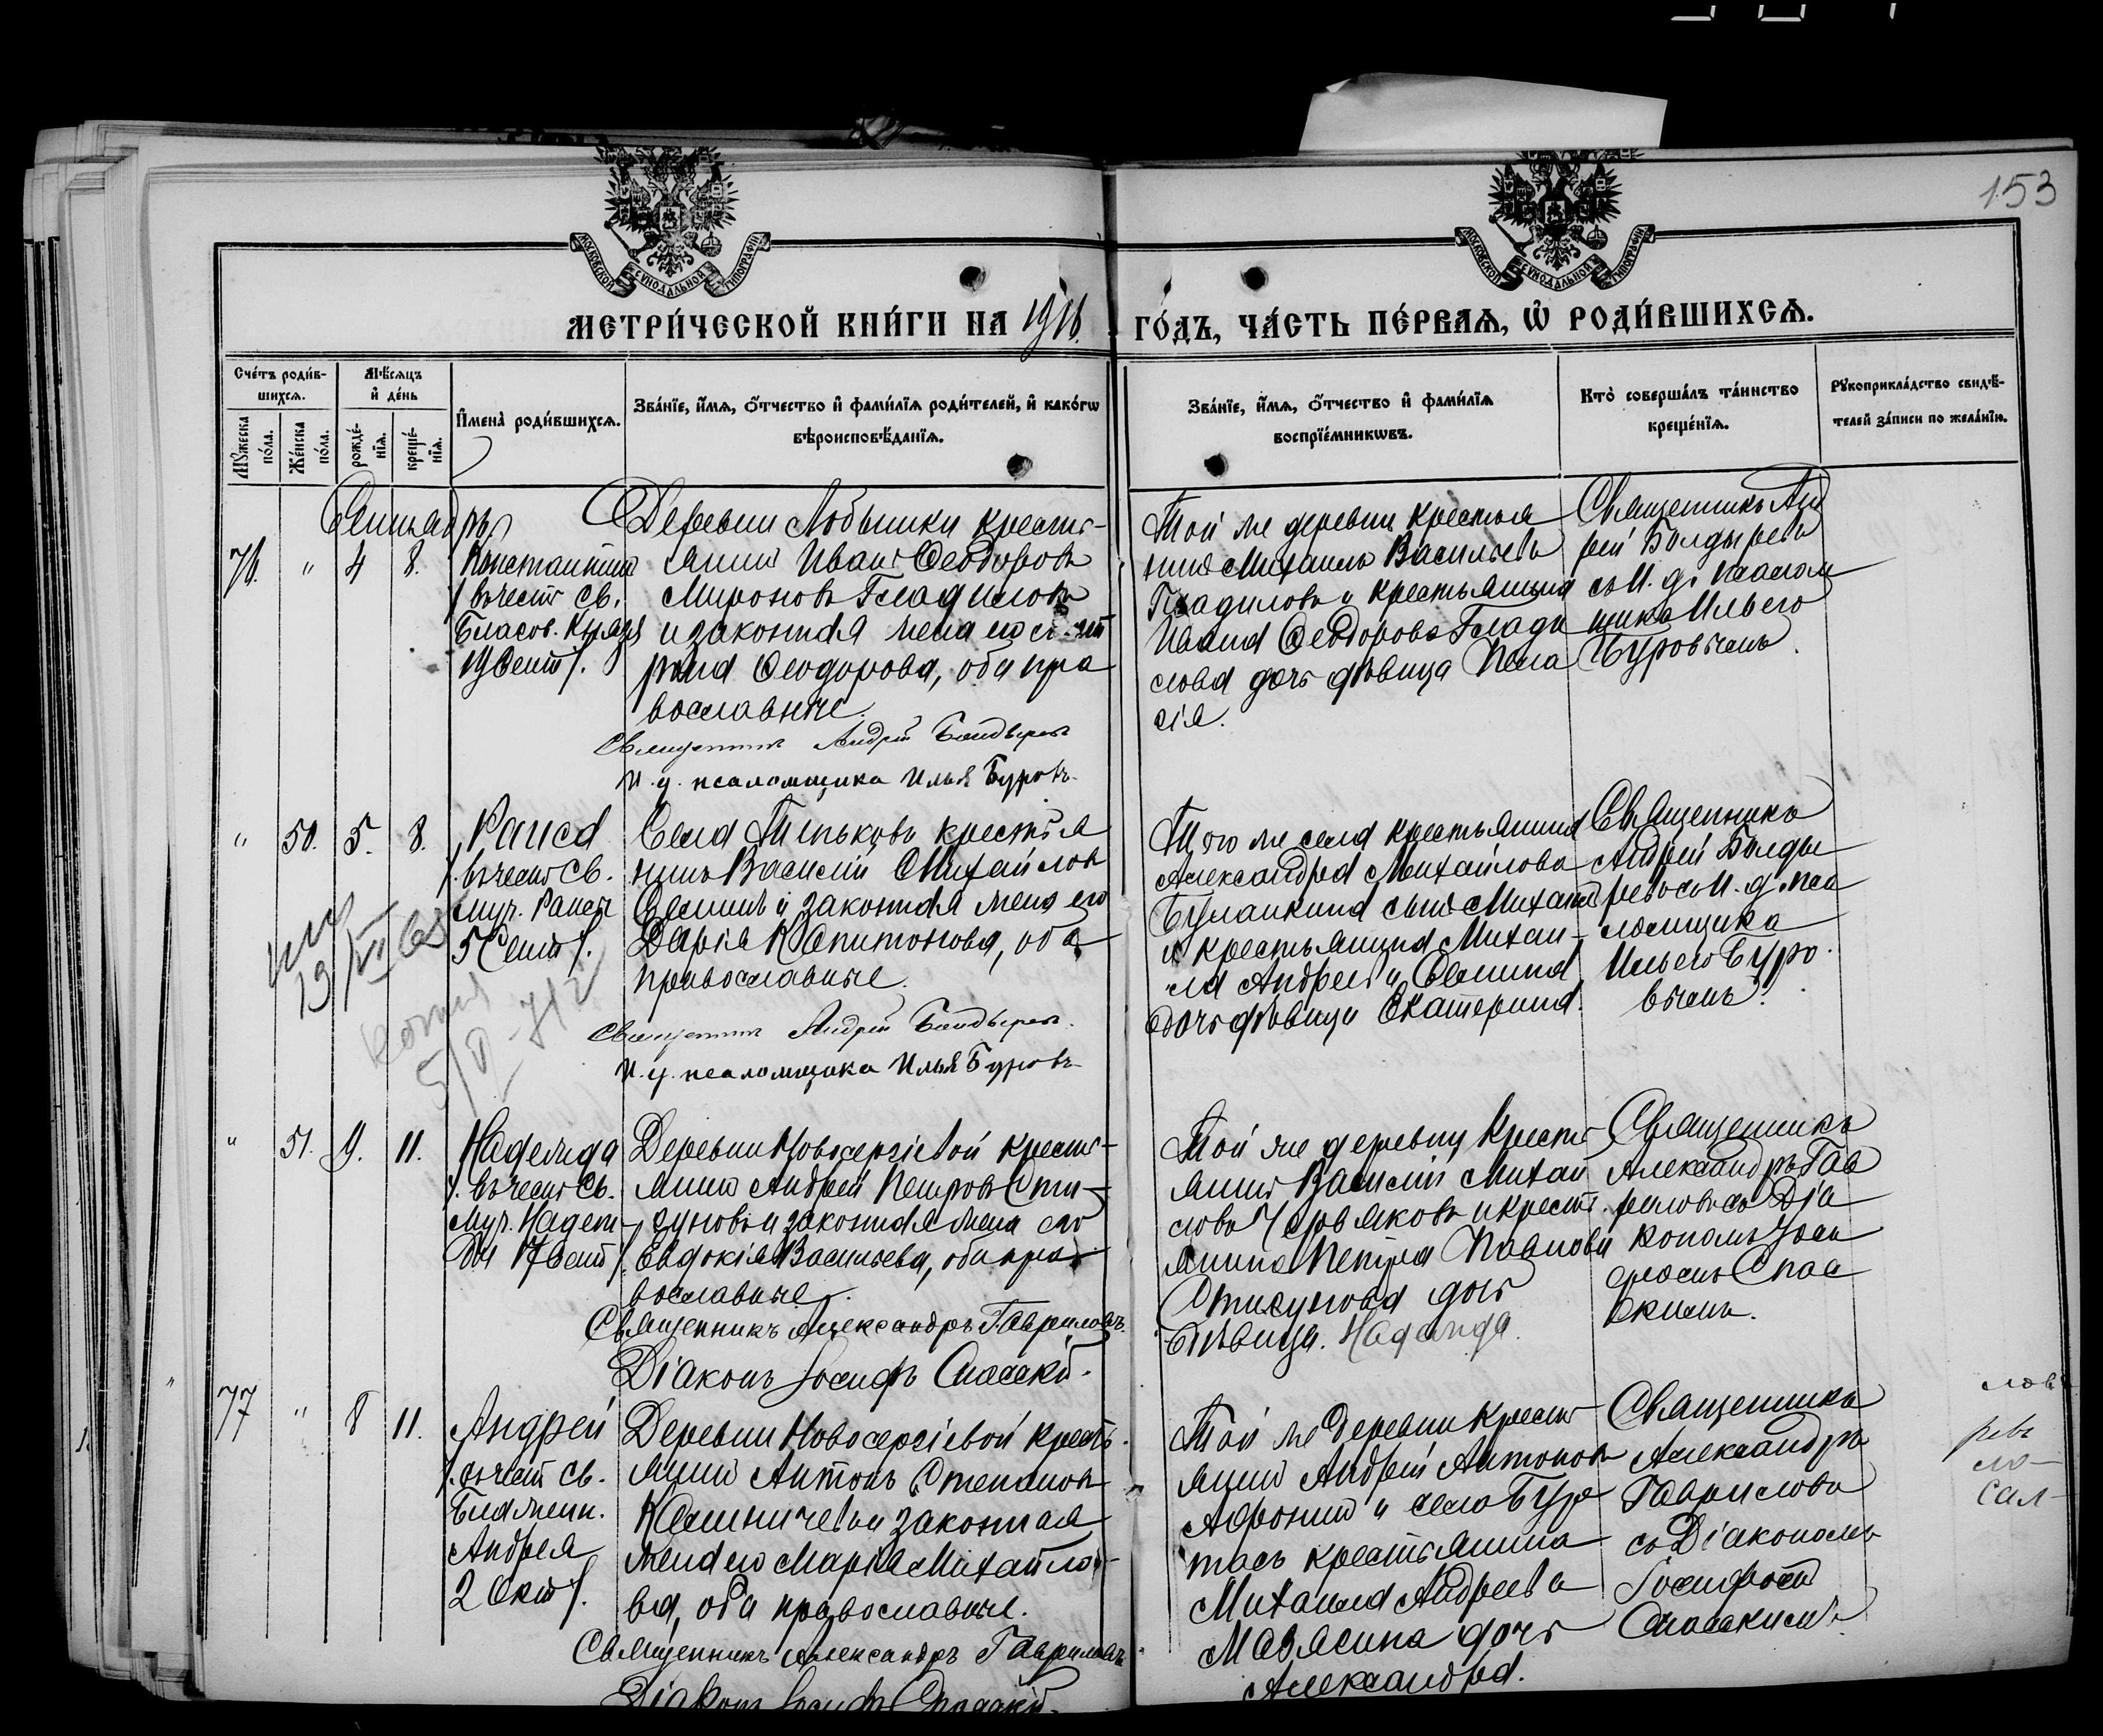 153
МОСКОВСКОЙ СѴНОДАЛЬНОЙ ТИПОГРАФІИ
МОСКОВСКОЙ СѴНОДАЛЬНОЙ ТИПОГРАФІИ
МЕТРИ́ЧЕСКОЙ КНИ́ГИ НА 1916 ГО́ДЪ, ЧА́СТЬ ПЕ́РВАѦ, Ѡ҆ РОДИ́ВШИХСѦ.
Сче́тъ роди́в-
шихсѧ.
Мꙋ́жеска по́ла.
Же́нска по́ла.
Мѣ́сѧцъ
и҆ де́нь
рожде́-
нїѧ.
креще́-
нїѧ.
И҆мена̀ роди́вшихсѧ.
Зва́нїе, и҆́мѧ, ѻ҆́тчество и҆ фами́лїѧ роди́телей, и҆ како́гѡ
вѣроисповѣ́данїѧ.
Зва́нїе, и҆́мѧ, ѻ҆́тчество и҆ фами́лїѧ
воспрїе́мникѡвъ.
Кто̀ соверша́лъ та́инство
креще́нїѧ.
Рꙋкоприкла́дство свидѣ́-
телей за́писи по жела́нїю.
Сентябрь
76. " 4 8.
Константинъ
/въ честь св.
Благов. Князя
19 Сент/.
Деревни Лобышки кресть-
янинъ Иванъ Ѳеодоровъ
Мироновъ Гладиловъ
и законная жена его
Ѳеодорова, оба пра
вославные.
Священникъ Андрей Болдыревъ
И. д. псаломщика Илья Буровъ.
Той же деревни крестья
нинъ Михаилъ Васильевъ
Гладиловъ и крестьянина
Ивана Ѳеодорова Глади
лова дочь дѣвица Пела
гія.
Священникъ Анд
рей Болдыревъ
съ И. д. псалом
щика Ильею
Буровымъ.
" 50. 5. 8.
Раиса
/въ честь св.
муч. Раисы
5 Сент/.
Села Теньково крестья
нинъ Василій Михайловъ
Семинъ и законная жена его
Дарія Капитонова, оба
православные.
Священникъ Андрей Болдыревъ.
И. д. псаломщика Илья Буровъ
Того же села крестьянина
Александра Михайлова
Буланкина сынъ Михаилъ
и крестьянина Михаи-
ла Андреева Семина
дочь дѣвица Екатерина.
Священникъ
Андрей Болды
ревъ съ И. д. пса
ломщика
Ильею Буро
вымъ.
19/VII 68
копия
5/V-712
" 51. 9. 11.
Надежда
/въ честь св.
муч. Надеж-
ды 17 Сент/.
Деревни Новосергіевой кресть-
янинъ Андрей Петровъ Сти-
гуновъ и законная жена его
Евдокія Васильева, оба пра
вославные.
Священникъ Александръ Гавриловъ.
Діаконъ Іосифъ Спасскій.
Той же деревни кресть
янинъ Василій Михай
ловъ Червяковъ и кресть
янина Петра Павлова
Стигунова дочь
дѣвица Надежда.
Священникъ
Александръ Гав
риловъ съ Діа
кономъ Іоси
фомъ Спас
скимъ.
77 " 8 11.
Андрей
/въ честь св.
Блаженн.
Андрея
2 Окт/.
Деревни Новосергіевой кресть-
янинъ Антонъ Степановъ
и законная
жена его Марія Михайло-
ва, оба православные.
Священникъ Александръ Гавриловъ
Діаконъ Іосифъ Спасскій.
Той же деревни кресть
янинъ Андрей Антоновъ
Афонинъ и села Бур
тасъ крестьянина
Михаила Андреева
Мавясина дочь
Александра.
Священникъ
Александръ
Гавриловъ
съ Діакономъ
Іосифомъ
Спасскимъ.
ловъ
ревъ
ло-
сал-